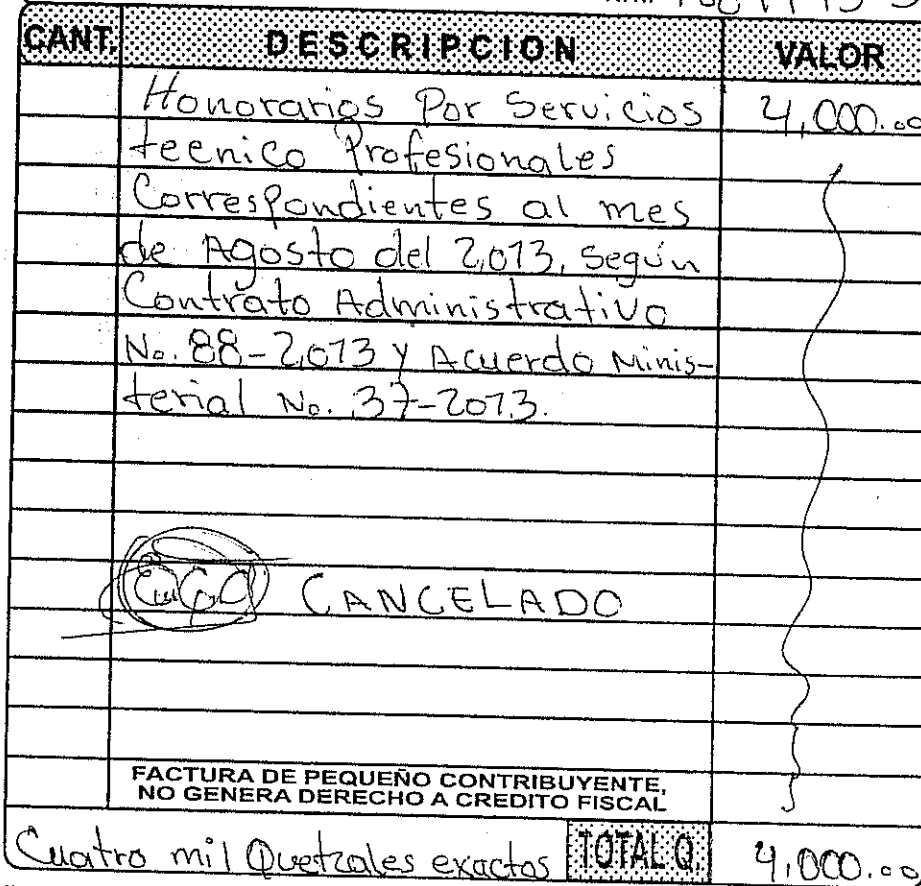 CANT. DESCRIPCION VALOR
Honorarios Por Servicios 4,000.00
teenico Profesionales
Correspondientes al mes
de Agosto del 2,013, Según
Contrato Administrativo
No. 88-2,013 y Acuerdo Minis-
terial No. 37-2013.
CANCELADO
FACTURA DE PEQUEÑO CONTRIBUYENTE,
NO GENERA DERECHO A CREDITO FISCAL
Cuatro mil Quetzales exactos TOTAL Q. 4,000.00